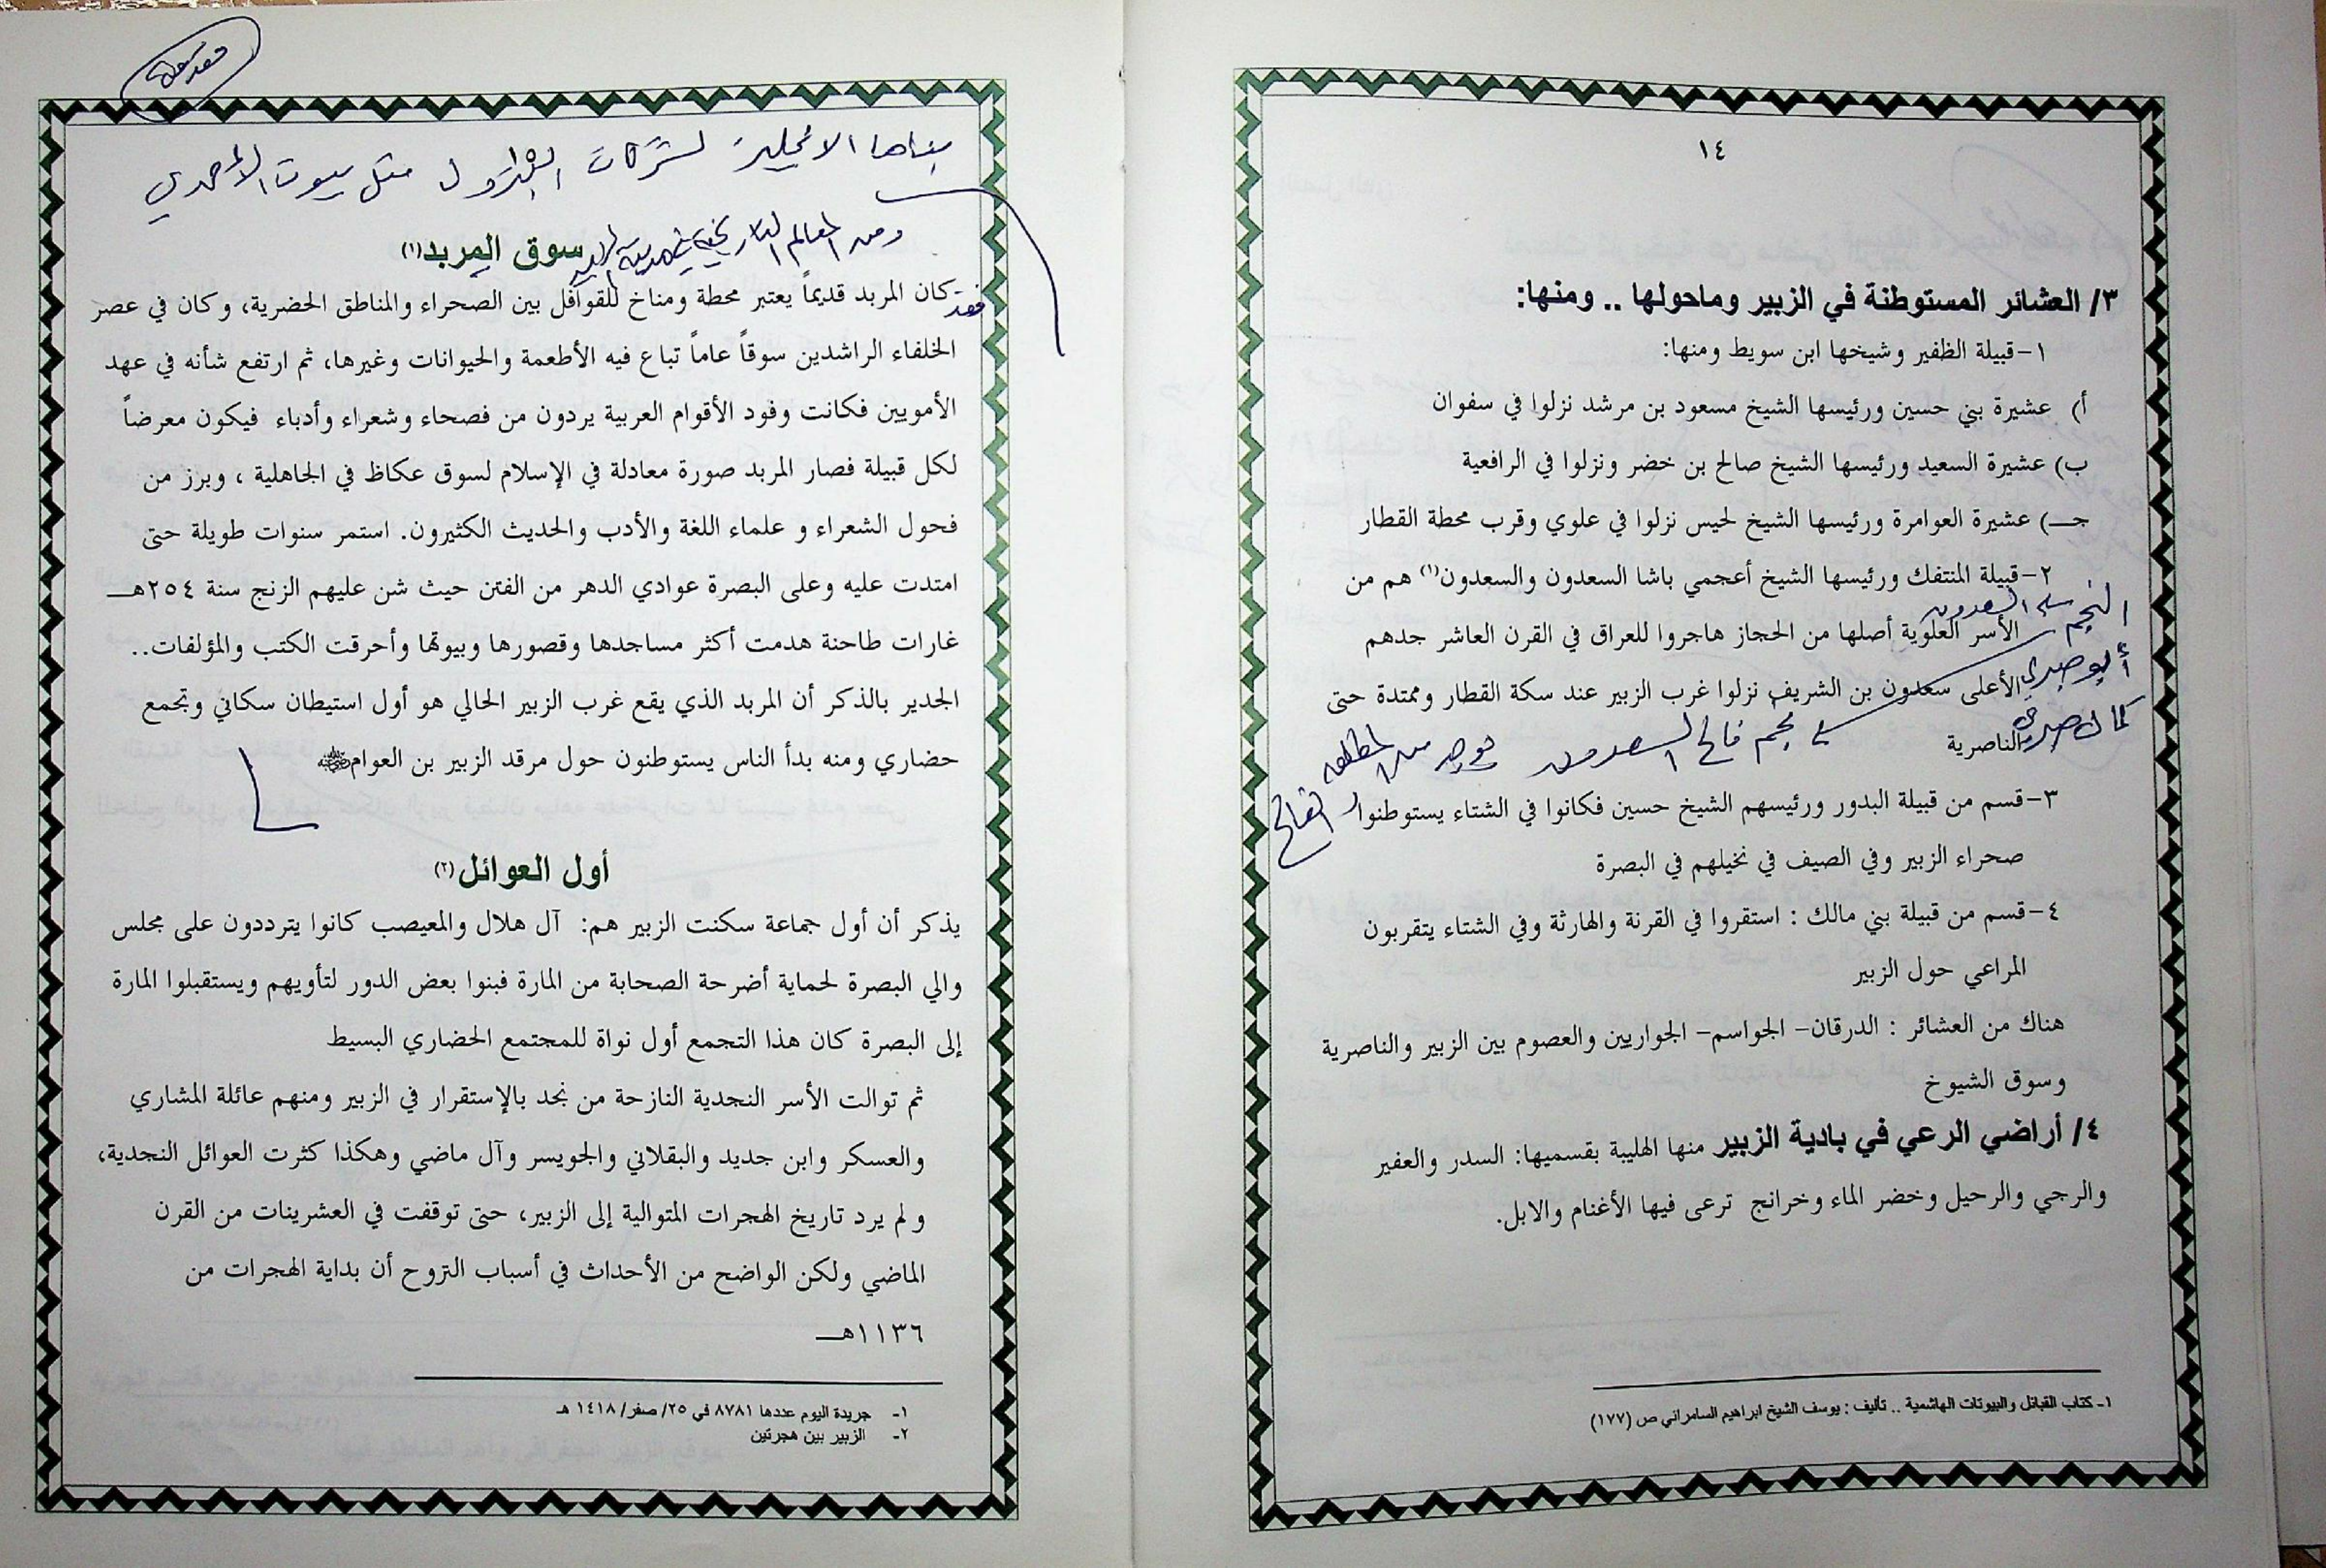 ١٤
٣/ العشائر المستوطنة في الزبير وماحولها .. ومنها:
١-قبيلة الظفير وشيخها ابن سويط ومنها:
أ) عشيرة بني حسين ورئيسها الشيخ مسعود بن مرشد نزلوا في سفوان
ب) عشيرة السعيد ورئيسها الشيخ صالح بن خضر ونزلوا في الرافعية
جـ) عشيرة العوامرة ورئيسها الشيخ لحيس نزلوا في علوي وقرب محطة القطار
٢-قبيلة المنتفك ورئيسها الشيخ أعجمي باشا السعدون والسعدون(١) هم من
النجم السعدون
الأسر العلوية أصلها من الحجاز هاجروا للعراق في القرن العاشر جدهم
الأعلى سعدون بن الشريف نزلوا غرب الزبير عند سكة القطار وممتدة حتى
الناصرية
نجم فالح السعدون
٣-قسم من قبيلة البدور ورئيسهم الشيخ حسين فكانوا في الشتاء يستوطنوا
صحراء الزبير وفي الصيف في نخيلهم في البصرة
٤-قسم من قبيلة بني مالك : استقروا في القرنة والهارثة وفي الشتاء يتقربون
المراعي حول الزبير
هناك من العشائر : الدرقان- الجواسم- الجواريين والعصوم بين الزبير والناصرية
وسوق الشيوخ
٤/ أراضي الرعي في بادية الزبير منها الهليبة بقسميها: السدر والعفير
والرجي والرحيل وخضر الماء وخرانج ترعى فيها الأغنام والابل.
١- كتاب القبائل والبيوتات الهاشمية .. تأليف : يوسف الشيخ ابراهيم السامراني ص (١٧٧)
بناها الانجليز لشركات البترول مثل بيوت الاحمدي
ومن المعالم التاريخية
سوق المربد(١)
فقد كان المربد قديماً يعتبر محطة ومناخ للقوافل بين الصحراء والمناطق الحضرية، وكان في عصر
الخلفاء الراشدين سوقاً عاماً تباع فيه الأطعمة والحيوانات وغيرها، ثم ارتفع شأنه في عهد
الأمويين فكانت وفود الأقوام العربية يردون من فصحاء وشعراء وأدباء فيكون معرضاً
لكل قبيلة فصار المربد صورة معادلة في الإسلام لسوق عكاظ في الجاهلية ، وبرز من
فحول الشعراء و علماء اللغة والأدب والحديث الكثيرون. استمر سنوات طويلة حتى
امتدت عليه وعلى البصرة عوادي الدهر من الفتن حيث شن عليهم الزنج سنة ٢٥٤هـ
غارات طاحنة هدمت أكثر مساجدها وقصورها وبيوتها وأحرقت الكتب والمؤلفات..
الجدير بالذكر أن المربد الذي يقع غرب الزبير الحالي هو أول استيطان سكاني وتجمع
حضاري ومنه بدأ الناس يستوطنون حول مرقد الزبير بن العوام
أول العوائل(٢)
يذكر أن أول جماعة سكنت الزبير هم: آل هلال والمعيصب كانوا يترددون على مجلس
والي البصرة لحماية أضرحة الصحابة من المارة فبنوا بعض الدور لتأويهم ويستقبلوا المارة
إلى البصرة كان هذا التجمع أول نواة للمجتمع الحضاري البسيط
ثم توالت الأسر النجدية النازحة من نجد بالإستقرار في الزبير ومنهم عائلة المشاري
والعسكر وابن جديد والبقلاني والجويسر وآل ماضي وهكذا كثرت العوائل النجدية،
و لم يرد تاريخ الهجرات المتوالية إلى الزبير، حتى توقفت في العشرينات من القرن
الماضي ولكن الواضح من الأحداث في أسباب النزوح أن بداية الهجرات من
١١٣٦هـ
١- جريدة اليوم عددها ٨٧٨١ في ٢٥/ صفر/ ١٤١٨ هـ
٢- الزبير بين هجرتين